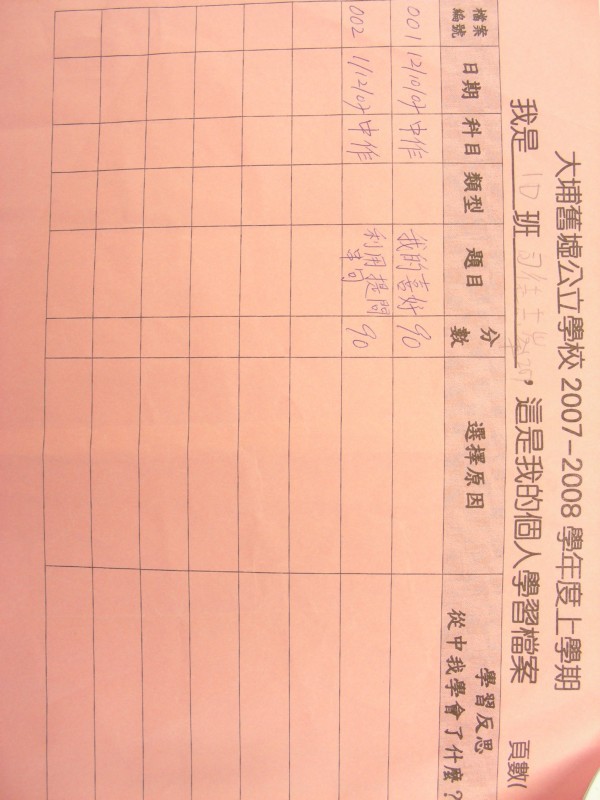 大埔舊墟公立學校 2007-2008 學年度上學期
我是 1D 班 ，這是我的個人學習檔案 頁數(
檔案編號 日期 科目 類型 題目 分數 選擇原因 學習反思 從中我學會了什麼？
001 12/10/07 中作 我的喜好 90
002 1/12/07 中作 利用提問 90